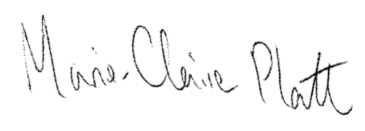 Marie-Claire Platt